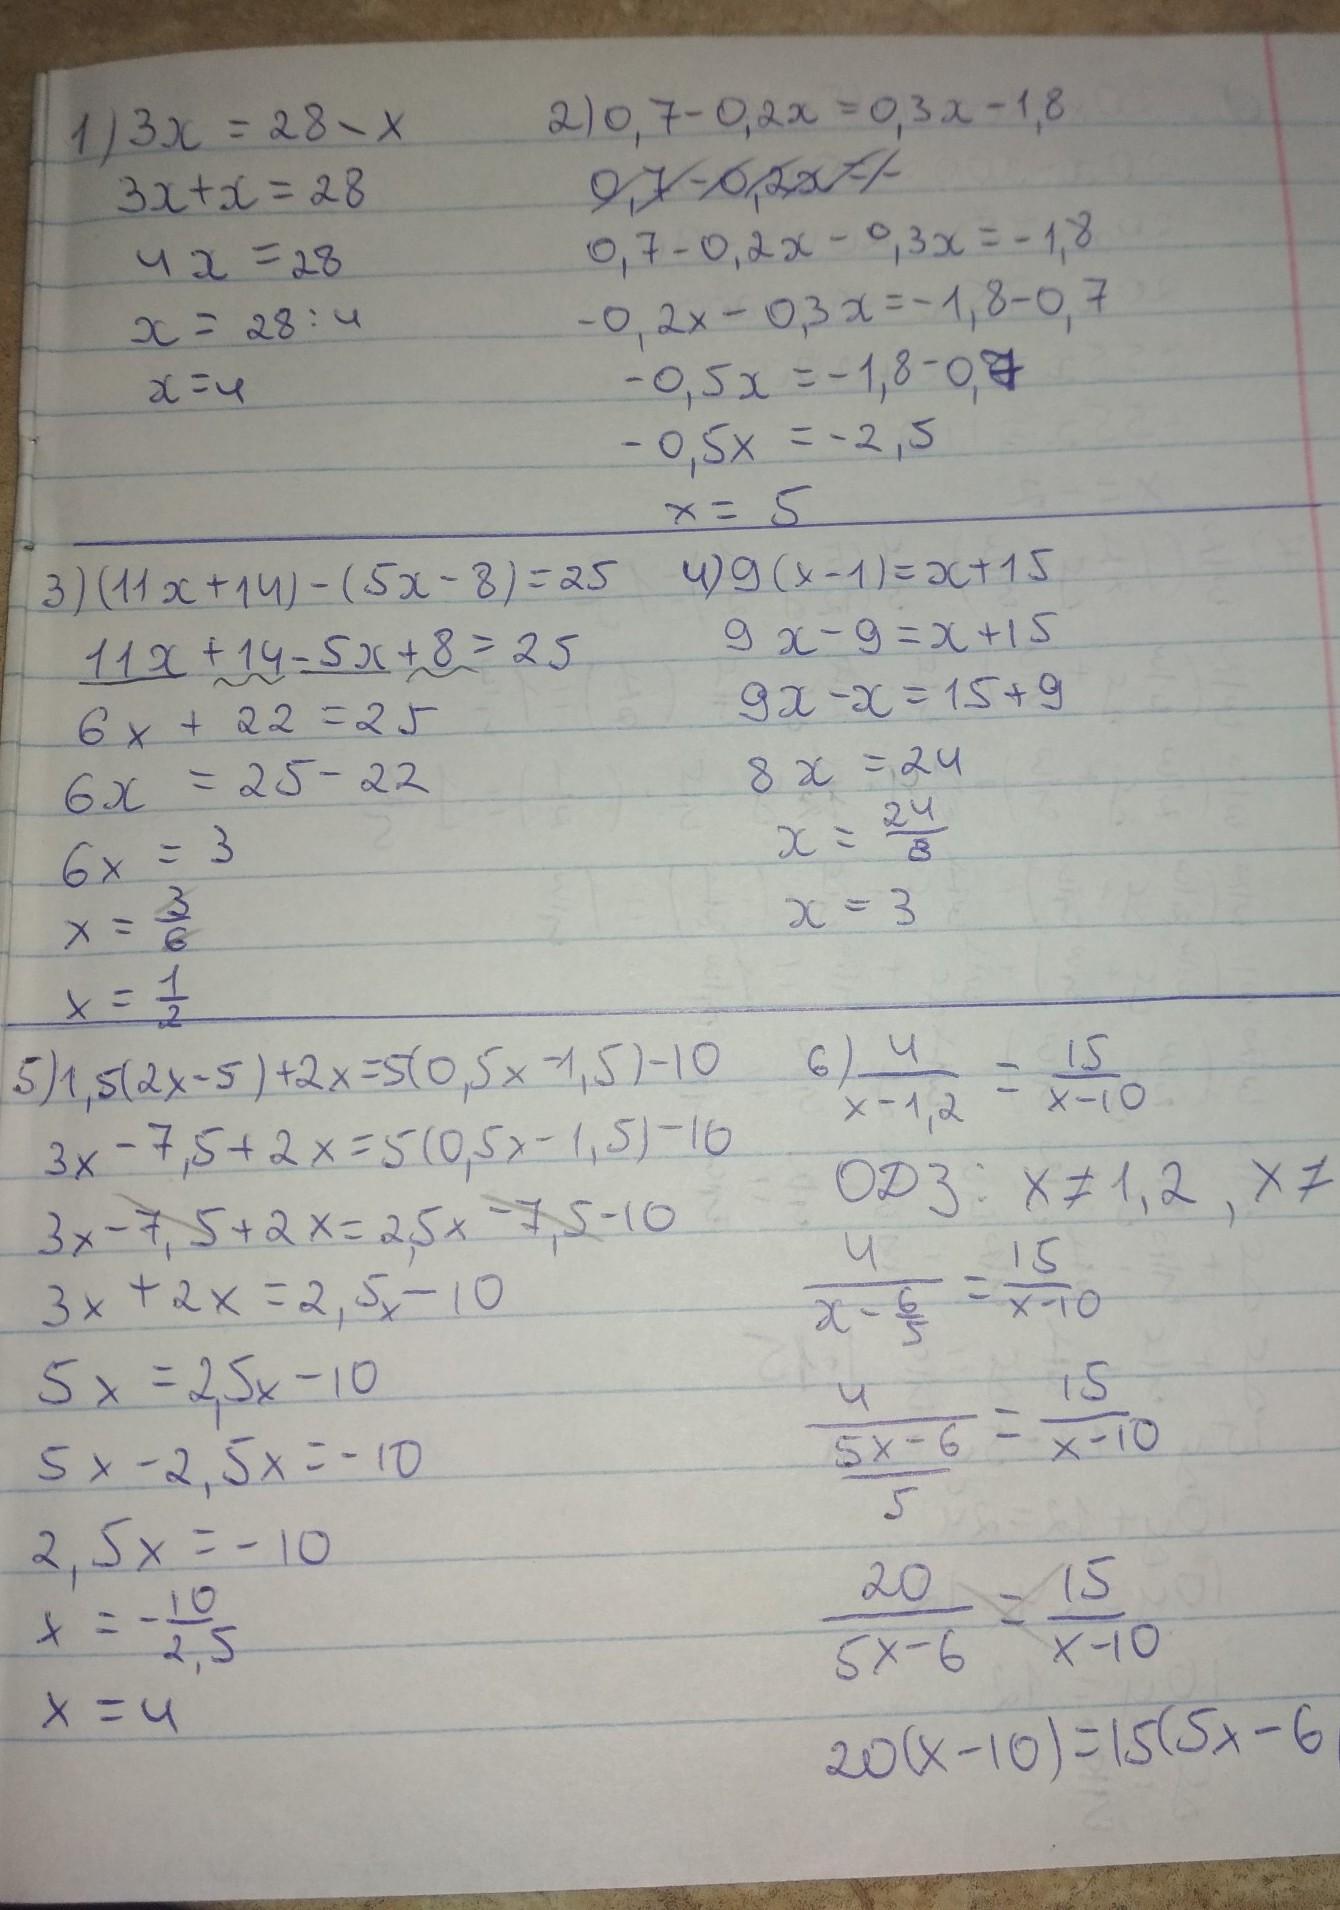 1) 3x = 28 - x
3x + x = 28
4x = 28
x = 28 : 4
x = 4
2) 0,7 - 0,2x = 0,3x - 1,8
0,7 - 0,2x = -
0,7 - 0,2x - 0,3x = -1,8
-0,2x - 0,3x = -1,8 - 0,7
-0,5x = -1,8 - 0,7
-0,5x = -2,5
x = 5
3) (11x + 14) - (5x - 8) = 25
11x + 14 - 5x + 8 = 25
6x + 22 = 25
6x = 25 - 22
6x = 3
x = 3/6
x = 1/2
4) 9(x - 1) = x + 15
9x - 9 = x + 15
9x - x = 15 + 9
8x = 24
x = 24/8
x = 3
5) 1,5(2x - 5) + 2x = 5(0,5x - 1,5) - 10
3x - 7,5 + 2x = 5(0,5x - 1,5) - 10
3x - 7,5 + 2x = 2,5x - 7,5 - 10
3x + 2x = 2,5x - 10
5x = 2,5x - 10
5x - 2,5x = -10
2,5x = -10
x = -10/2,5
x = 4
6) 4/(x - 1,2) = 15/(x - 10)
ОДЗ: x ≠ 1,2, x ≠
4/(x - 6/5) = 15/(x - 10)
4/((5x - 6)/5) = 15/(x - 10)
20/(5x - 6) = 15/(x - 10)
20(x - 10) = 15(5x - 6